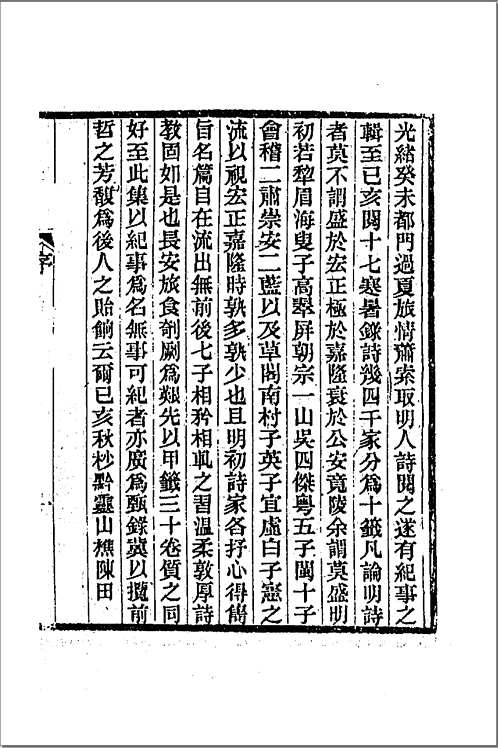 光緒癸未都門過夏旅情蕭索取明人詩閱之遂有紀事之
輯至己亥閱十七寒暑錄詩幾四千家分爲十籤凡論明詩
者莫不謂盛於宏正極於嘉隆衰於公安竟陵余謂莫盛明
初若犂眉海叟子高翠屏朝宗一山吳四傑粵五子閩十子
會稽二肅崇安二藍以及草閣南村子英子宜虛白子憲之
流以視宏正嘉隆時孰多孰少也且明初詩家各抒心得雋
旨名篇自在流出無前後七子相矜相軋之習溫柔敦厚詩
教固如是也長安旅食剞劂爲艱先以甲籤三十卷質之同
好至此集以紀事爲名無事可紀者亦廣爲甄錄冀以攬前
哲之芳馥爲後人之貽餉云爾己亥秋杪黔靈山樵陳田
序